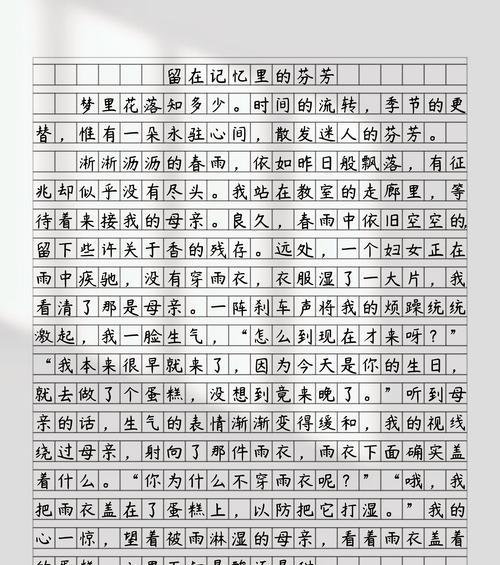 留在记忆里的芬芳
梦里花落知多少。时间的流转，季节的更
替，惟有一朵永驻心间，散发迷人的芬芳。
淅淅沥沥的春雨，依如昨日般飘落，有征
兆却似乎没有尽头。我站在教室的走廊里，等
待着来接我的母亲。良久，春雨中依旧空空的，
留下些许关于香的残存。远处，一个妇女正在
雨中疾驰，没有穿雨衣，衣服湿了一大片，我
看清了那是母亲。一阵刹车声将我的烦躁统统
激起，我一脸生气，“怎么到现在才来呀？”
“我本来很早就来了，因为今天是你的生日，
就去做了个蛋糕，没想到竟来晚了。”听到母
亲的话，生气的表情渐渐变得缓和，我的视线
绕过母亲，射向了那件雨衣，雨衣下面确实盖
着什么。“你为什么不穿雨衣呢？”“哦，我
把雨衣盖在了蛋糕上，以防把它打湿。”我的
心一惊，望着被雨淋湿的母亲，看着雨衣盖着